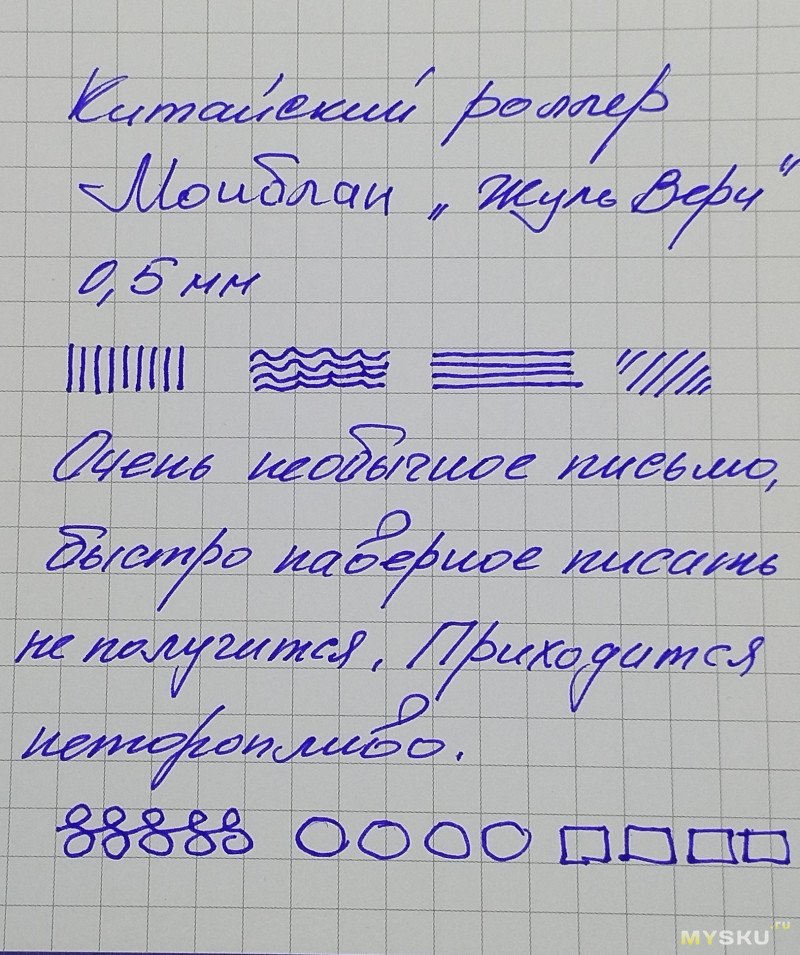 Китайский роллер
Монблан „Жуль Верн"
0,5 мм
Очень необычное письмо,
быстро наверное писать
не получится. Приходится
неторопливо.
MYSKU.ru